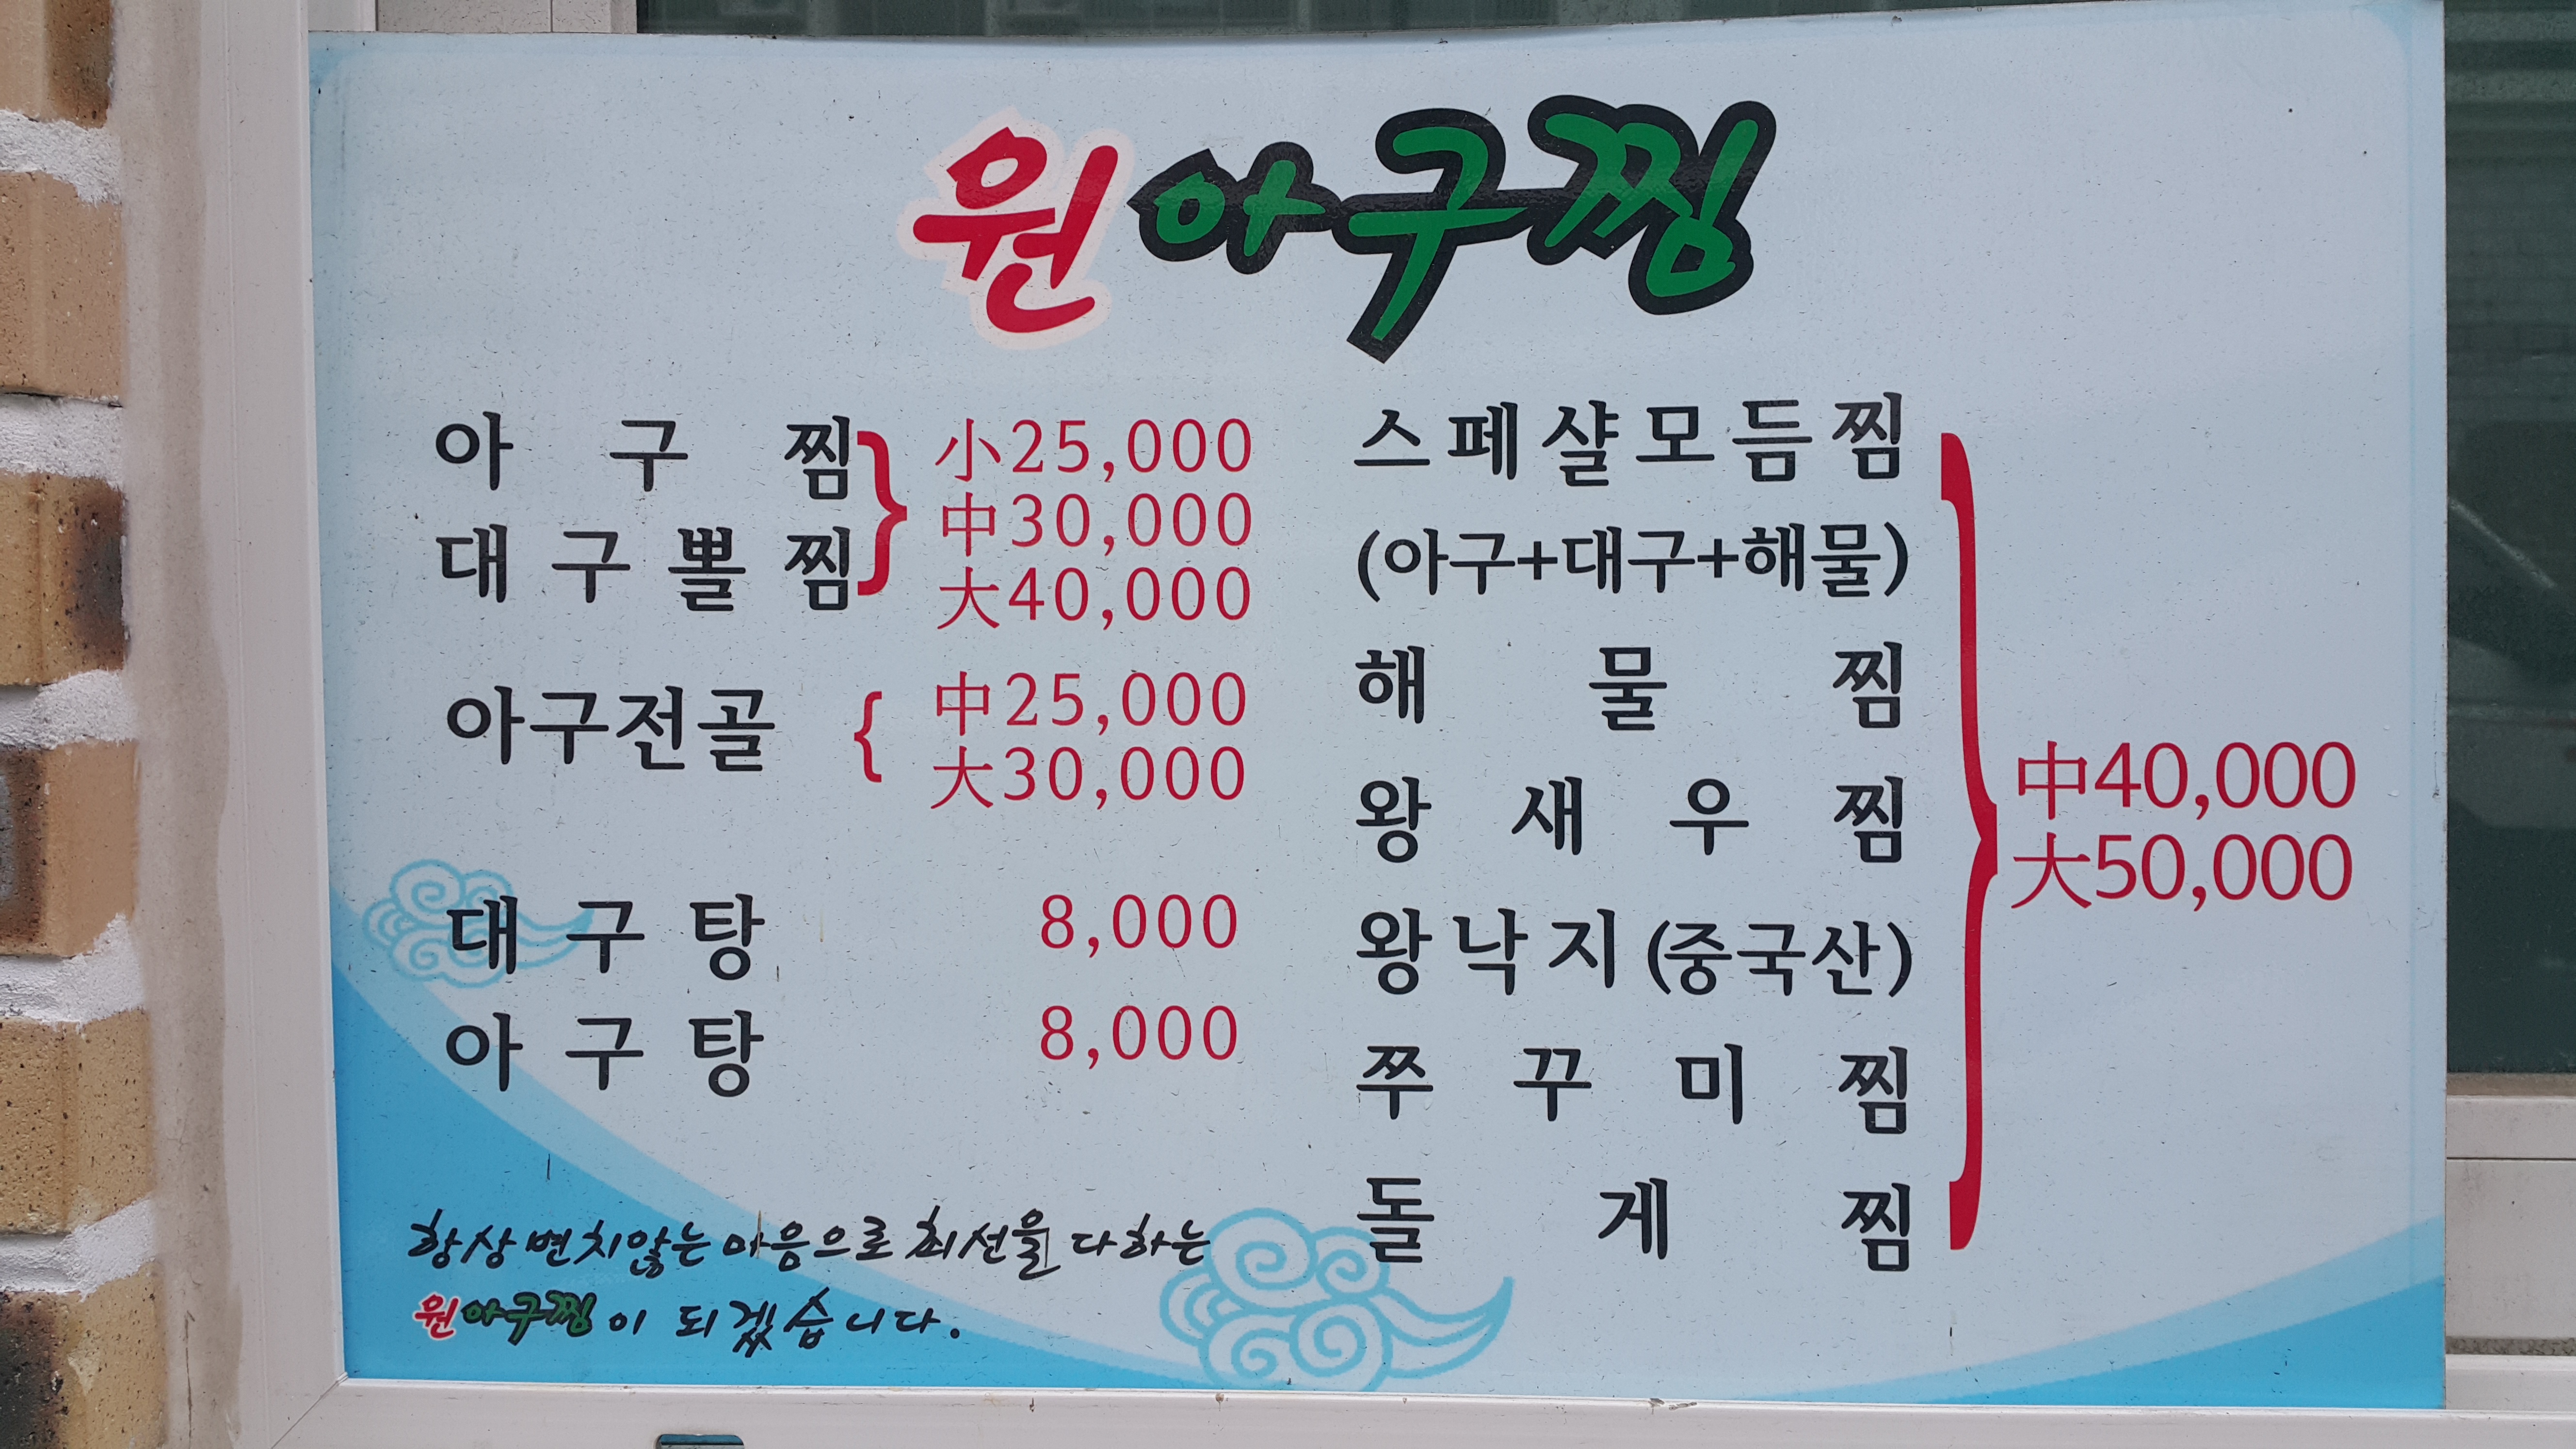 원아구찜
아구찜
대구뽈찜
小25,000
中30,000
大40,000
아구전골
中25,000
大30,000
대구탕 8,000
아구탕 8,000
스페샬모듬찜
(아구+대구+해물)
해물찜
왕새우찜
왕낙지(중국산)
쭈꾸미찜
돌게찜
中40,000
大50,000
항상 변치않는 마음으로 최선을 다하는
원아구찜이 되겠습니다.